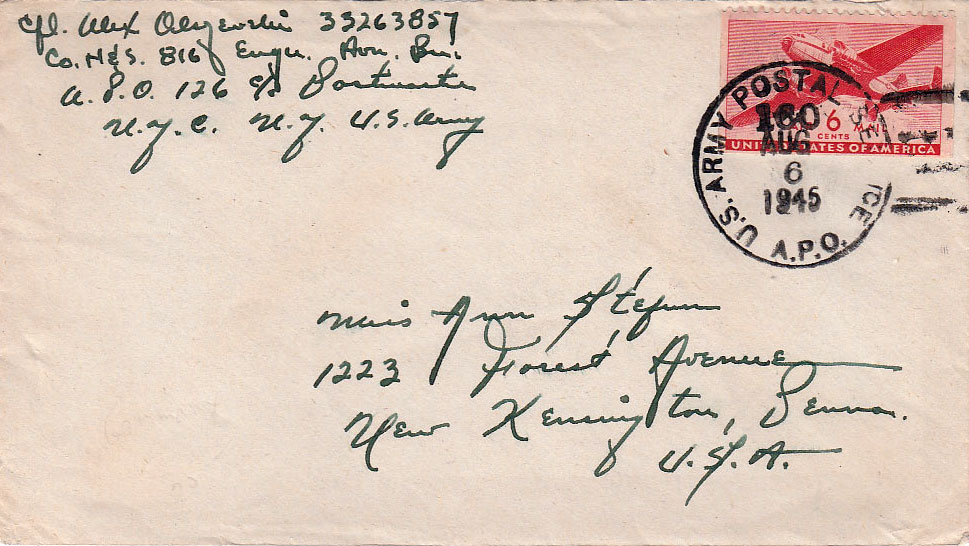 Cpl. Alex Olszewski 33263857
Co. H&S. 816 Engr. Avn. Bn.
A.P.O. 126 c/o Postmaster
N.Y.C. N.Y. U.S. Army
U.S. ARMY POSTAL SERVICE
A.P.O.
160
AUG
6
1945
6
CENTS
UNITED STATES OF AMERICA
Miss Ann Stefun
1223 Forest Avenue
New Kensington, Penna.
U.S.A.